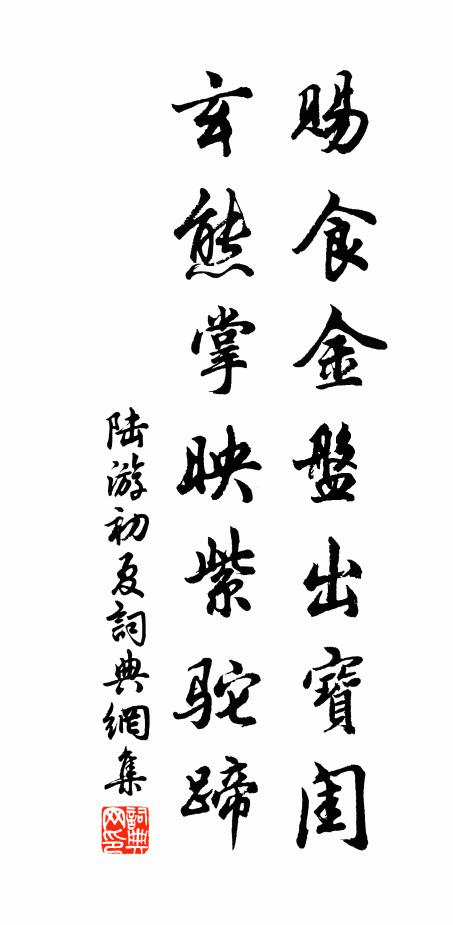 賜食金盤出寶閨
玄熊掌映紫駝蹄
陸游初夏詞典網集
詞典网印